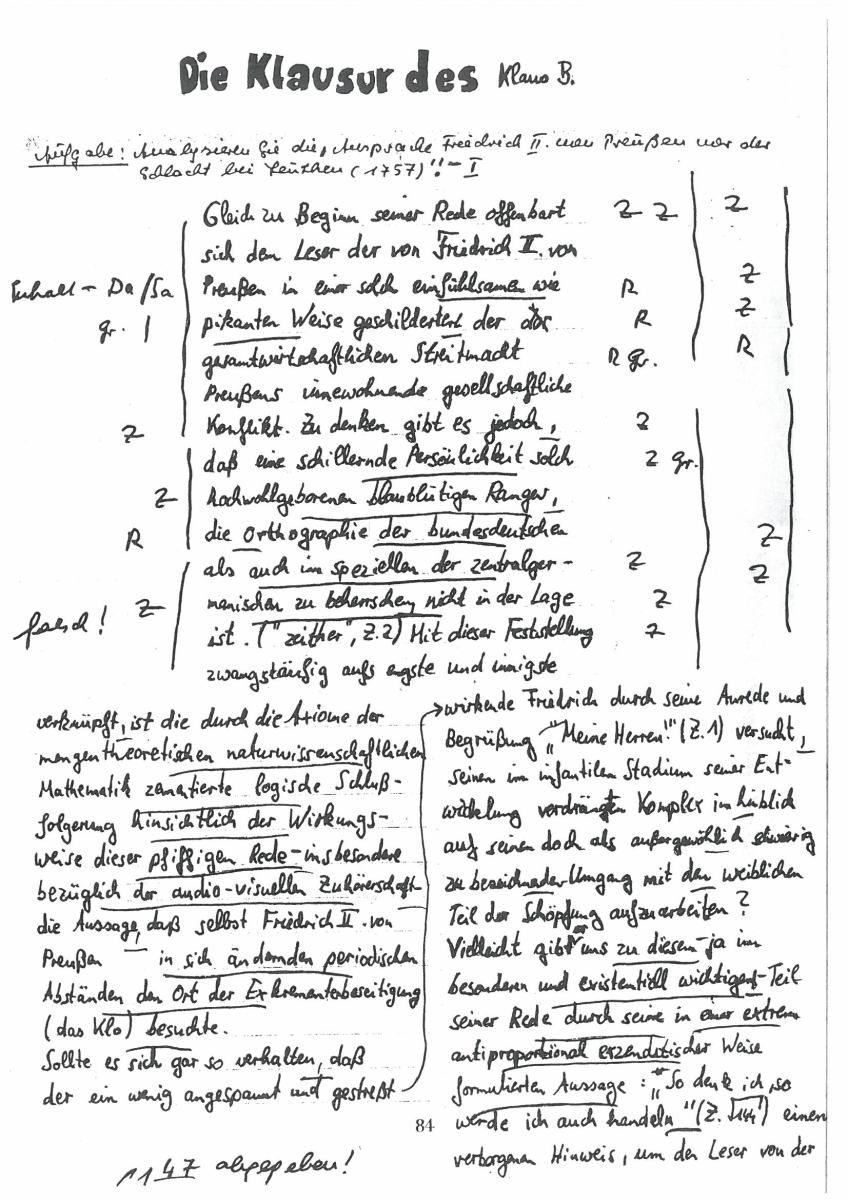 Die Klausur des Klaus B.
Aufgabe: Analysieren Sie die "Ansprache Friedrich II. von Preußen vor der
Schlacht bei Leuthen (1757)"! - I
Gleich zu Beginn seiner Rede offenbart Z Z Z
sich den Leser der von Friedrich II. von
Inhalt - Da/Sa Preußen in einer solch einfühlsamen wie R Z
gr. | pikanten Weise geschilderterl der das R Z
gesamtwirtschaftlichen Streitmacht R gr. R
Preußens innewohnende gesellschaftliche
Z Konflikt. Zu denken gibt es jedoch, Z
daß eine schillernde Persönlichkeit solch Z gr.
Z hochwohlgeborenen blaublütigen Ranges,
R die Orthographie der bundesdeutschen Z
als auch im speziellen der zentralger- Z Z
falsch! Z manischen zu beherrschen nicht in der Lage Z
ist. ("zeither", Z.2) Mit dieser Feststellung Z
zwangsläufig aufs engste und innigste
verknüpft, ist die durch die Axiome der
mengentheoretischen naturwissenschaftlichen
Mathematik zementierte logische Schluß-
folgerung hinsichtlich der Wirkungs-
weise dieser pfiffigen Rede - insbesondere
bezüglich der audio-visuellen Zuhörerschaft -
die Aussage, daß selbst Friedrich II. von
Preußen in sich ändernden periodischen
Abständen den Ort der Exkrementebeseitigung
(das Klo) besuchte.
Sollte es sich gar so verhalten, daß
der ein wenig angespannt und gestreßt
wirkende Friedrich durch seine Anrede und
Begrüßung "Meine Herren!" (Z.1) versucht,
seinen im infantilen Stadium seiner Ent-
wickelung verdrängten Komplex im hinblick
auf seinen doch als außergewöhlich schwierig
zu bezeichnader Umgang mit den weiblichen
Teil der Schöpfung aufzuarbeiten?
Vielleicht gibt er uns zu diesem - ja im
besonderen und existentiell wichtigen - Teil
seiner Rede durch seine in einer extrem
antiproportional exzendrischer Weise
formulierten Aussage: "So denke ich, so
werde ich auch handeln" (Z. √144) einen
verborgenen Hinweis, um den Leser von der
84
1147 abgegeben!